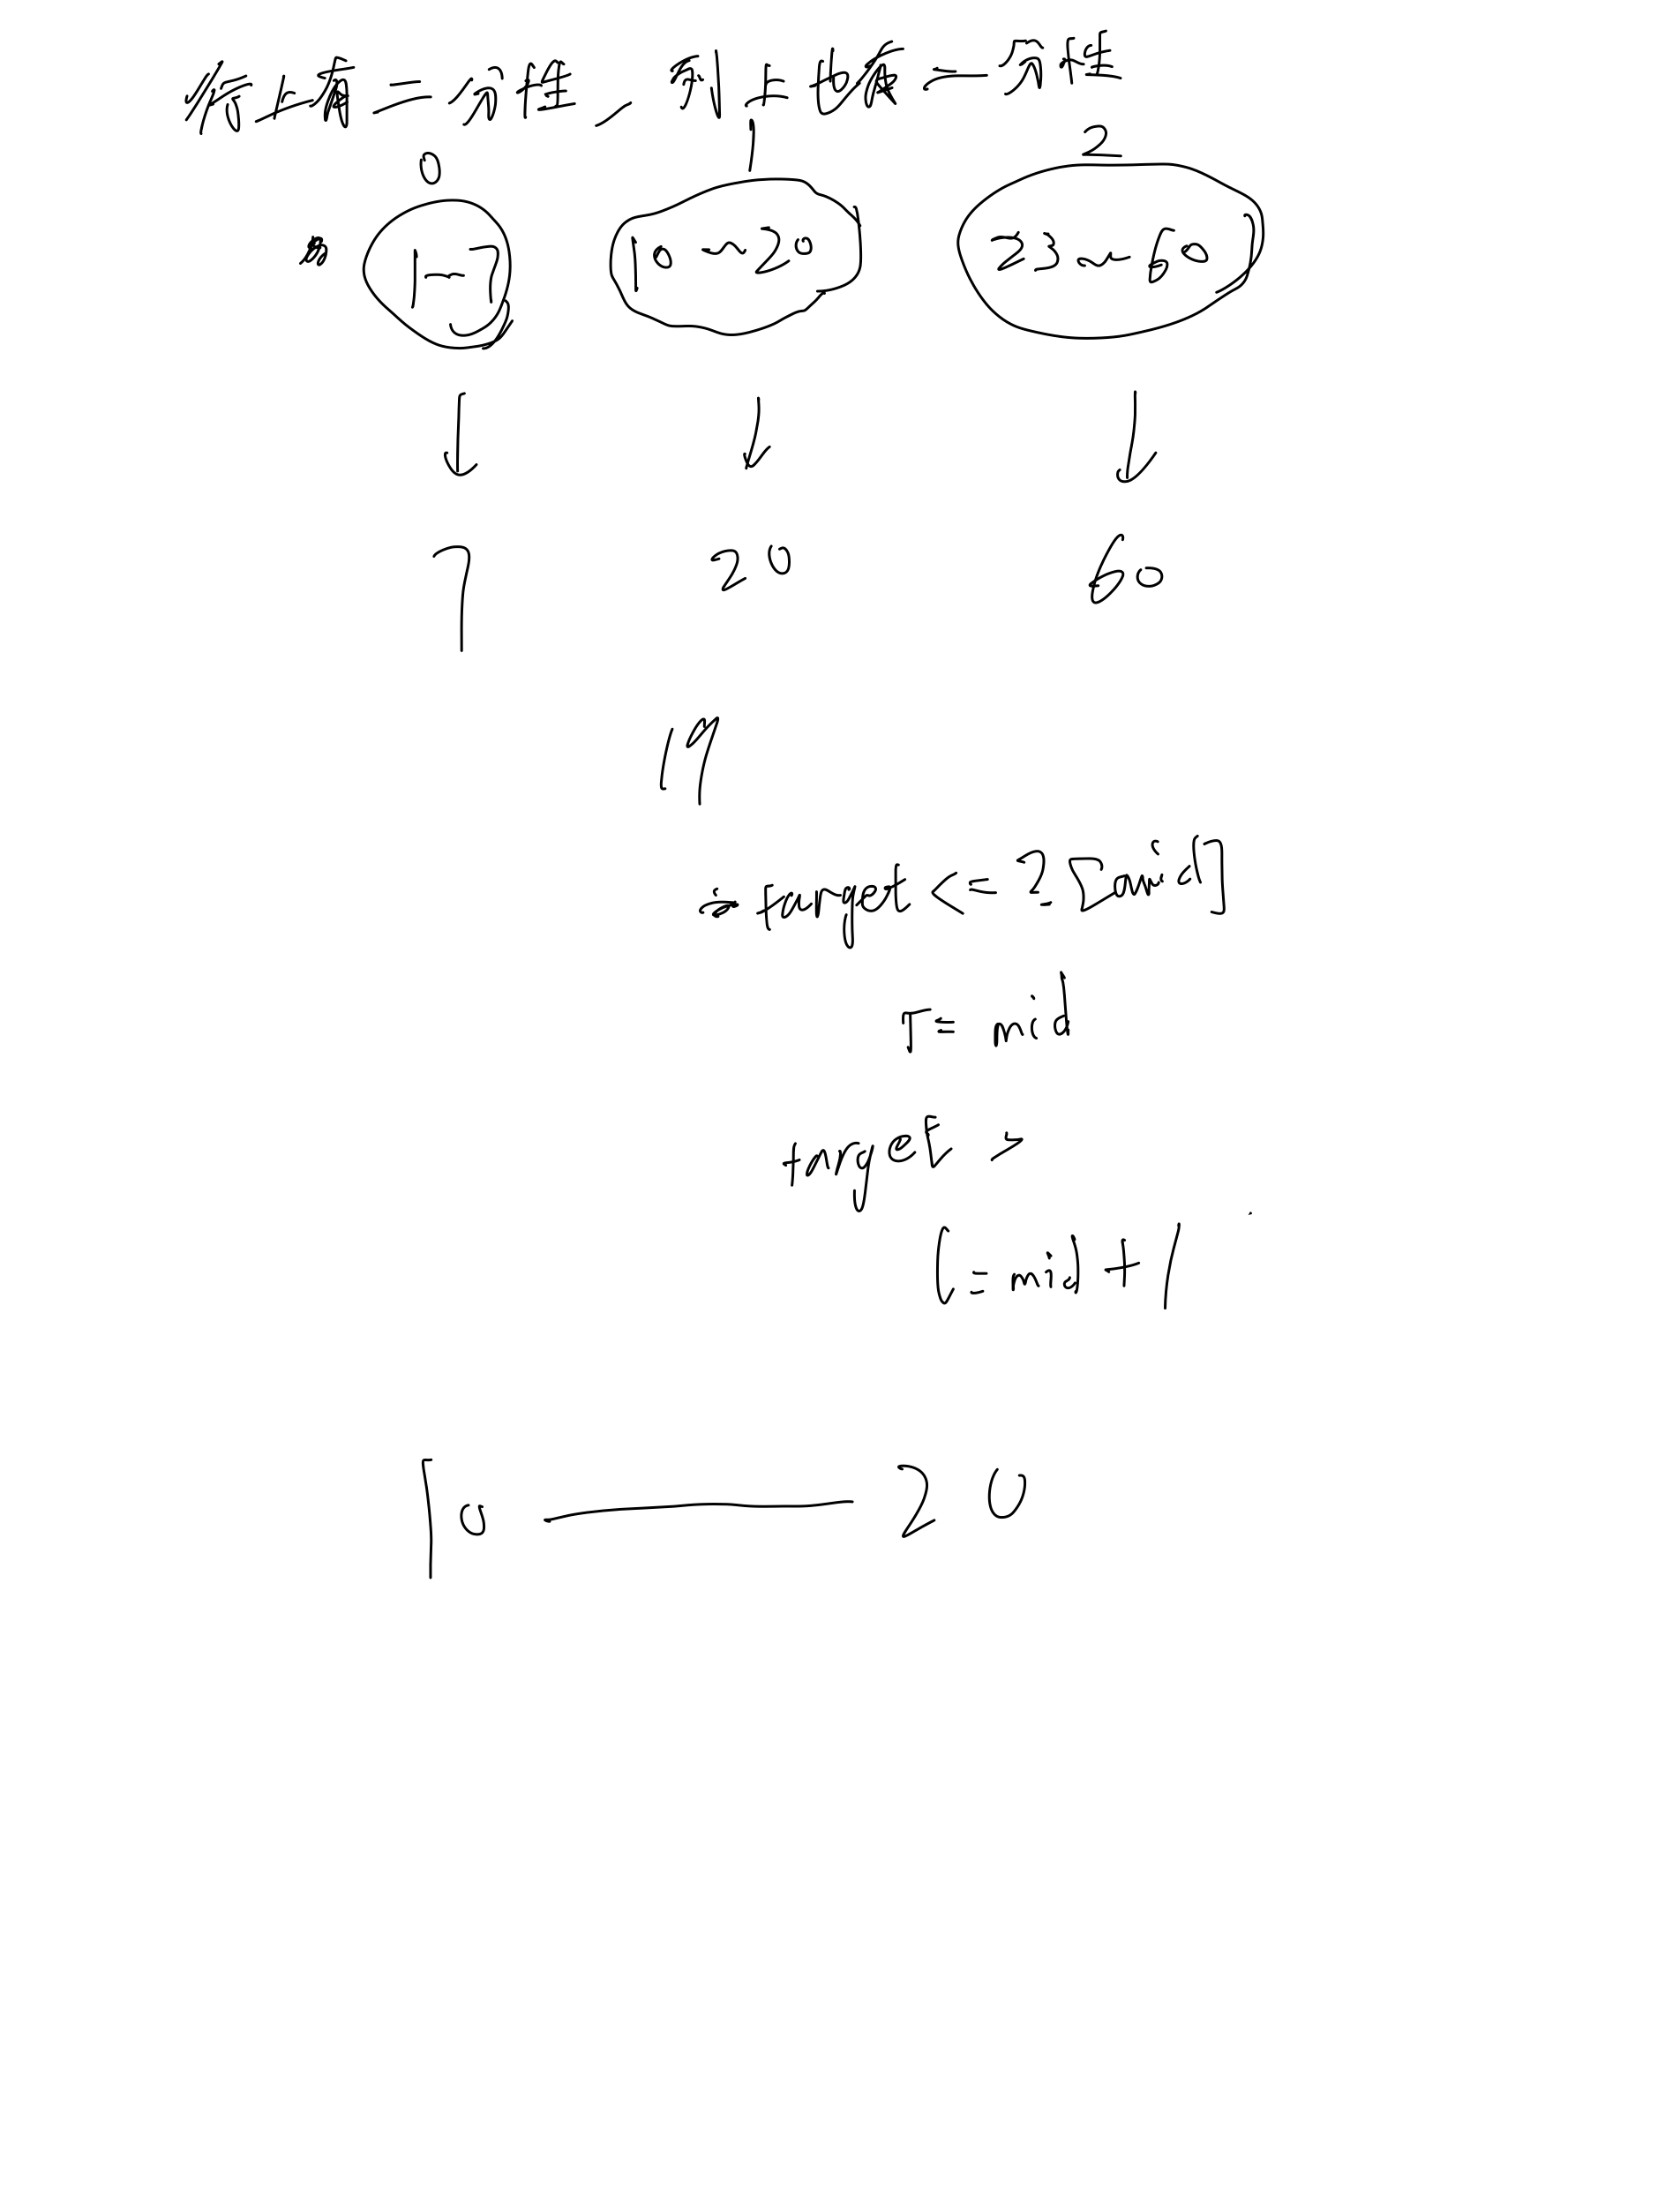 行上有二分性，列上也有二分性
0 1 2
1-7 10~20 23~60
7 20 60
19
target <= 2[mid]
r = mid
target >
l = mid + 1
10 — 20